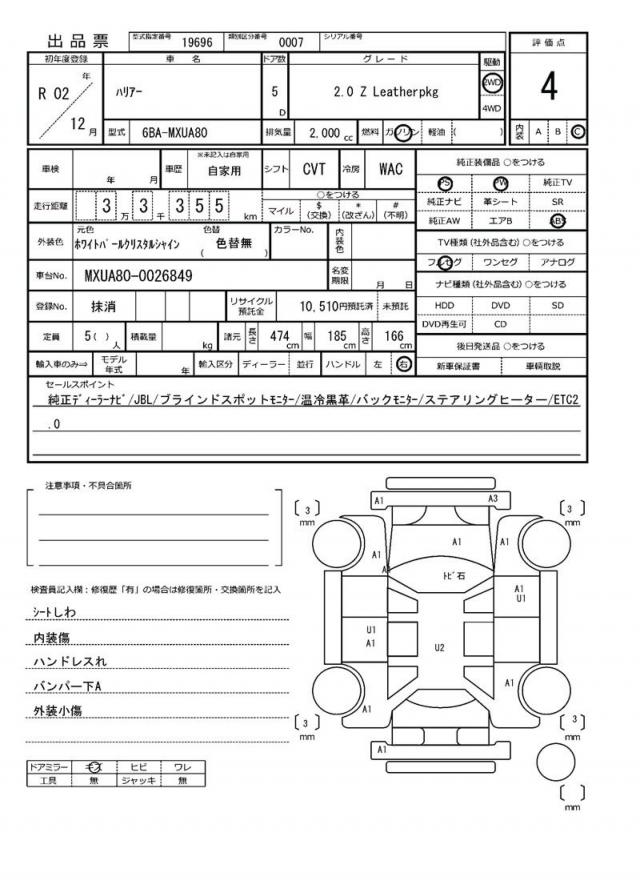 出品票
型式指定番号 19696 類別区分番号 0007 シリアル番号
初年度登録 車名 ドア数 グレード 駆動 評価点
R 02 年 12 月
ハリアー
5 D
2.0 Z Leatherpkg
2WD
4WD
4
型式 6BA-MXUA80 排気量 2,000 cc 燃料 ガソリン 軽油 ( )
内装 A B C
車検 年 月 車歴 ※未記入は自家用 自家用 シフト CVT 冷房 WAC
純正装備品 ○をつける
PS PW 純正TV
走行距離 3 万 3 千 3 5 5 km
○をつける
マイル $(交換) *(改ざん) #(不明)
純正ナビ 革シート SR
純正AW エアB ABS
外装色 元色 ホワイトパールクリスタルシャイン 色替 ( 色替無 ) カラーNo. 内装色
TV種類 (社外品含む) ○をつける
フルセグ ワンセグ アナログ
車台No. MXUA80-0026849 名変期限 月 日
ナビ種類 (社外品含む) ○をつける
登録No. 抹消 リサイクル預託金 10,510円預託済 未預託
HDD DVD SD
DVD再生可 CD
定員 5( ) 人 積載量 kg 諸元 長さ 474 cm 幅 185 cm 高さ 166 cm
後日発送品 ○をつける
輸入車のみ⇒ モデル年式 年 輸入区分 ディーラー 並行 ハンドル 左 右
新車保証書 車輌取説
セールスポイント
純正ディーラーナビ/JBL/ブラインドスポットモニター/温冷黒革/バックモニター/ステアリングヒーター/ETC2
.0
注意事項・不具合箇所
検査員記入欄:修復歴「有」の場合は修復箇所・交換箇所を記入
シートしわ
内装傷
ハンドレスれ
バンパー下A
外装小傷
ドアミラー キズ ヒビ ワレ
工具 無 ジャッキ 無
A1 A3
3 mm
3 mm
A1 A1 A1
A
トビ石
A1
U1
U1
A1
U2
A1 A1
3 mm
3 mm
A1
mm